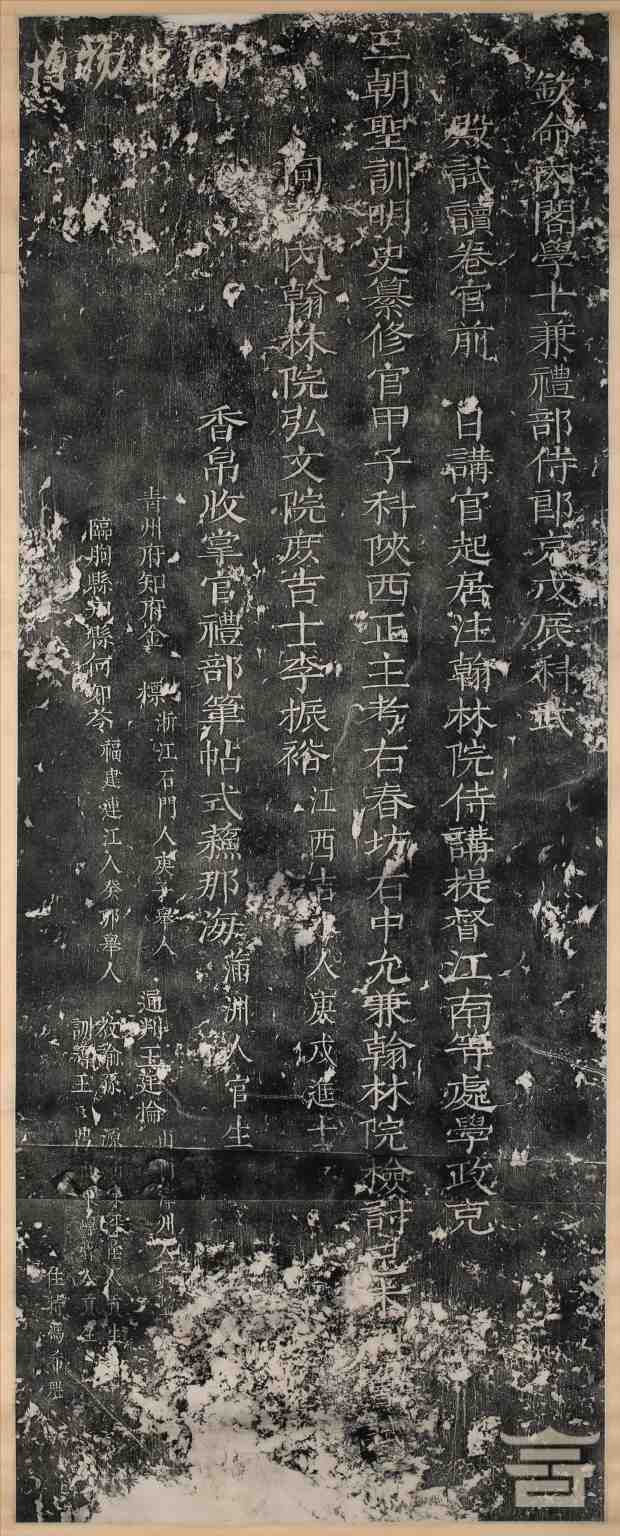 欽命內閣學士兼禮部侍郎充戊辰科武
殿試讀卷官前 日講官起居注翰林院侍講提督江南等處學政充
三朝聖訓明史纂修官甲子科陝西正主考右春坊右中允兼翰林院檢討己未
同 內翰林院弘文院庶吉士李振裕江西吉 人庚戌進士
香帛收掌官禮部筆帖式蘓那海滿洲人官生
青州府知府金 標浙江石門人庚子舉人 通判王廷掄山
臨朐縣知縣何如苓福建連江人癸卯舉人 教諭孫 源
訓導王
住持馮
博物中国